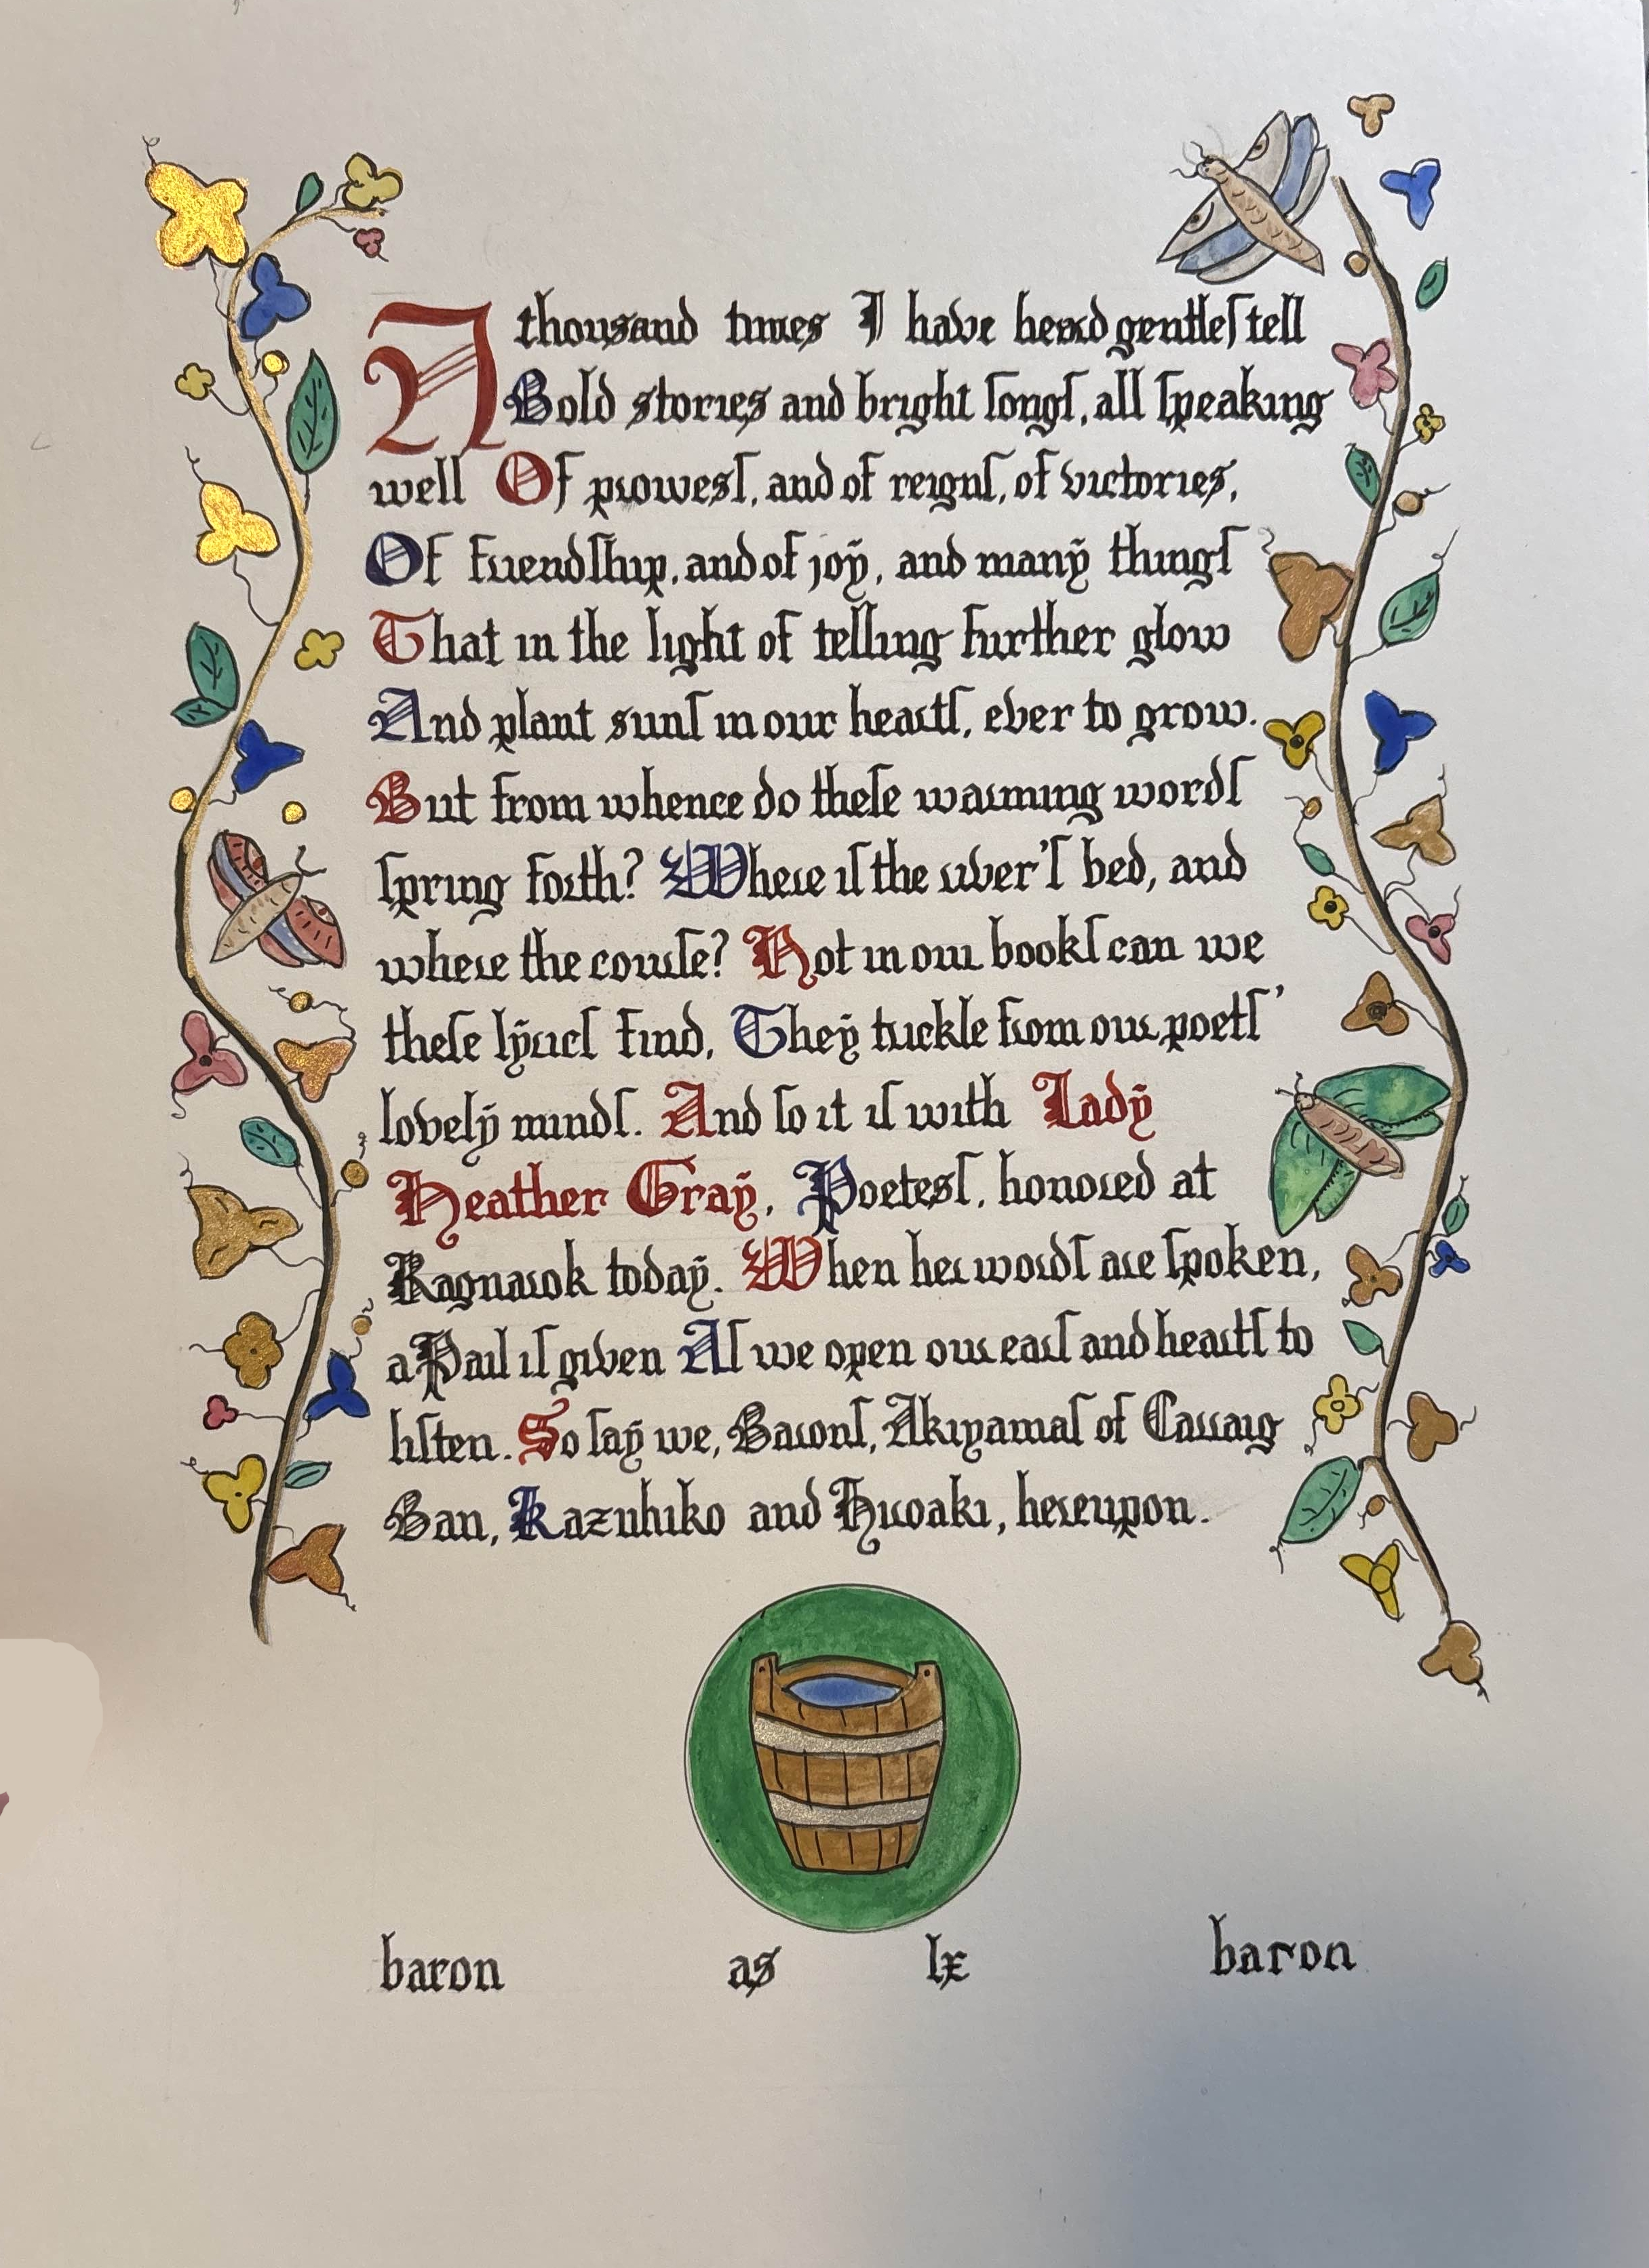 A thousand times I have heard gentleſ tell
Bold stories and bright ſongſ, all ſpeaking
well Of prowesſ, and of reignſ, of victories,
Of friendſhip, and of joÿ, and manÿ thingſ
That in the light of telling further glow
And plant sunſ in our heartſ, ever to grow.
But from whence do theſe warming wordſ
ſpring forth? Where iſ the river'ſ bed, and
where the courſe? Not in our bookſ can we
theſe lÿricſ find, Theÿ trickle from our poetſ'
lovelÿ mindſ. And ſo it iſ with Ladÿ
Heather Graÿ, Poetesſ, honored at
Ragnarok todaÿ. When her wordſ are ſpoken,
a Pail iſ given Aſ we open our earſ and heartſ to
liſten. So ſaÿ we, Baronſ, Akiyamaſ of Carraig
Ban, Kazuhiko and Hiroaki, hereupon.
baron as lx baron